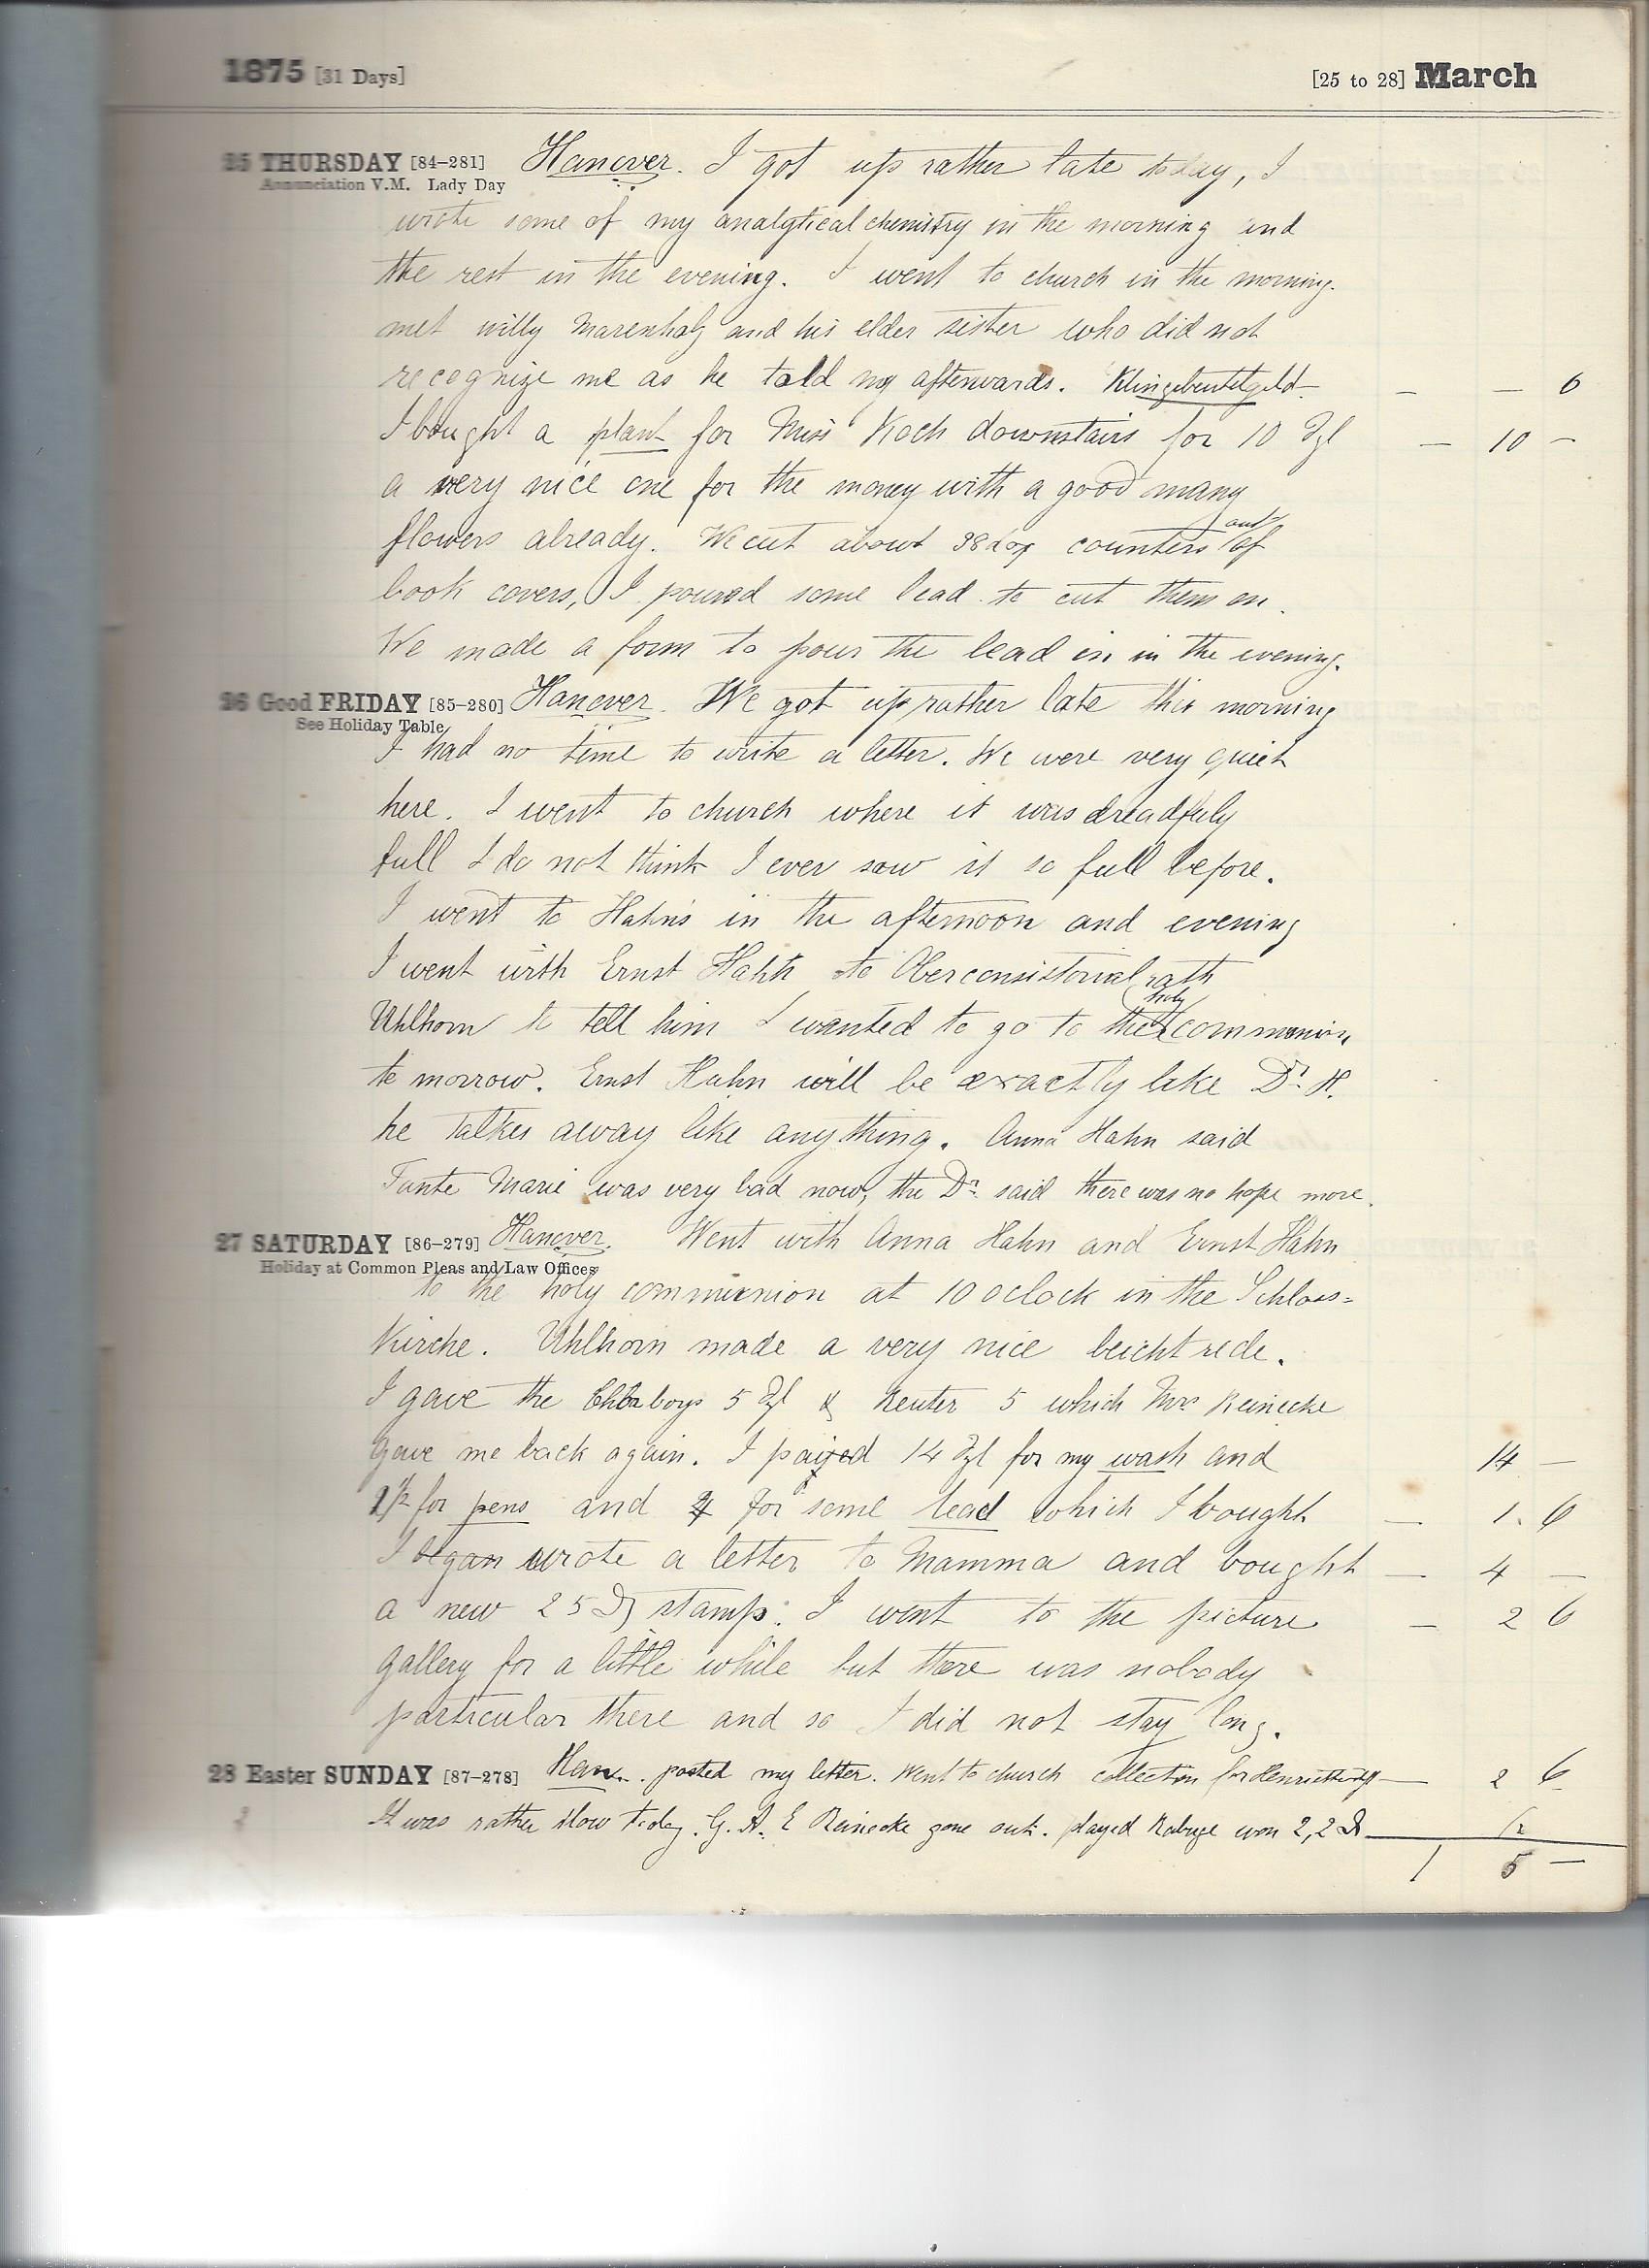 1875 [31 Days] [25 to 28] March
25 THURSDAY [84-281] Hanover. I got up rather late today, I
Annunciation V.M. Lady Day
wrote some of my analytical chemistry in the morning and
the rest in the evening. I went to church in the morning.
met willy Marenholz and his elder sister who did not
recognize me as he told my afterwards. Klingebeutelgeld — — — 6
I bought a plant for Miss Koch downstairs for 10 — 10 —
a very nice one for the money with a good many
flowers already. We cut about 38 doz counters out of
book covers, I poured some lead to cut them on.
We made a form to pour the lead in in the evening.
26 Good FRIDAY [85-280] Hanover. We got up rather late this morning
See Holiday Table
I had no time to write a letter. We were very quiet
here. I went to church where it was dreadfuly
full I do not think I ever saw it so full before.
I went to Hahn's in the afternoon and evening
I went with Ernst Hahn to Oberconsistorial rath
Uhlhorn to tell him I wanted to go to the holy communion
to morrow. Ernst Hahn will be exactly like Dr. H.
he talkes away like anything. Anna Hahn said
Tante Marie was very bad now, the Dr. said there was no hope more.
27 SATURDAY [86-279] Hanover. Went with Anna Hahn and Ernst Hahn
Holiday at Common Pleas and Law Offices
to the holy communion at 10 oclock in the Schloss=
Kirche. Uhlhorn made a very nice beichtrede.
I gave the boys 5 & Reuter 5 which Mrs Reinecke
gave me back again. I payed 14 for my wash and 14 —
1½ for pens and 4 for some lead which I bought — 1. 6
I began wrote a letter to Mamma and bought — 4 —
a new 25 stamp. I went to the picture — 2 6
gallery for a little while but there was nobody
particular there and so I did not stay long.
28 Easter SUNDAY [87-278] Han. posted my letter. Went to church collection for — 2 6
It was rather slow today. G. A. E Reinecke gone out. played won 2,2
1 5 —